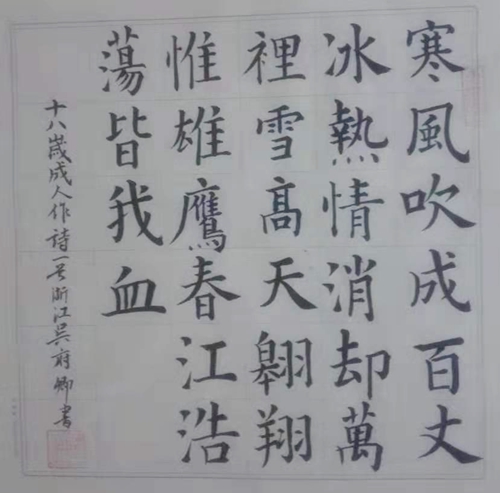 寒風吹成百丈
冰熱情消却萬
裡雪高天翱翔
惟雄鷹春江浩
蕩皆我血
十八歲成人作詩一号浙江吳府卿書